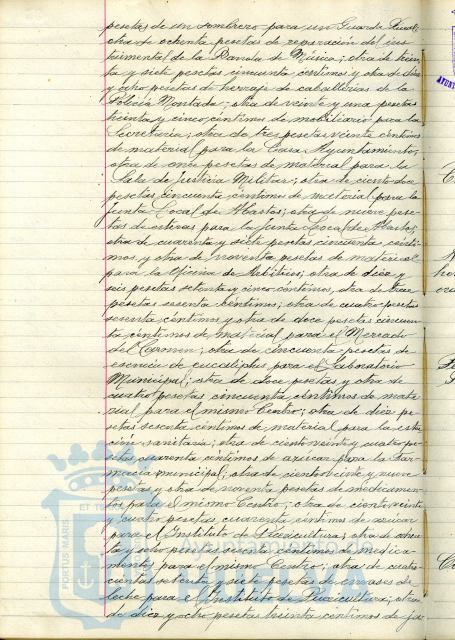 pesetas de un sombrero para un Guarda Rural;
otra de ochenta pesetas de reparación del ins
trumental de la Banda de Música; otra de trein
ta y siete pesetas cincuenta céntimos y otra de diez
y ocho pesetas de herraje de caballerías de la
Policía Montada; otra de veinte y una pesetas
treinta y cinco céntimos de mobiliario para la
Secretaría; otra de tres pesetas veinte céntimos
de material para la Casa Ayuntamiento;
otra de once pesetas de material para la
Sala de Justicia Militar; otra de ciento doce
pesetas cincuenta céntimos de material para la
Junta Local de Abastos; otra de nueve pese
tas de esteras para la Junta Local de Abastos;
otra de cuarenta y siete pesetas cincuenta cénti
mos y otra de noventa pesetas de material
para la Oficina de Arbitrios; otra de diez y
seis pesetas setenta y cinco céntimos, otra de trece
pesetas sesenta céntimos; otra de cuatro pesetas
sesenta céntimos y otra de doce pesetas cincuen
ta céntimos de material para el Mercado
del Carmen; otra de cincuenta pesetas de
esencia de eucaliptus para el Laboratorio
Municipal; otra de doce pesetas y otra de
cuatro pesetas cincuenta céntimos de mate
rial para el mismo Centro; otra de diez pe
setas sesenta céntimos de material para la esta
ción sanitaria; otra de ciento veinte y cuatro pe
setas cuarenta céntimos de azúcar para la Far
macia municipal; otra de ciento veinte y nueve
pesetas y otra de noventa pesetas de medicamen
tos para el mismo Centro; otra de ciento veinte
y cuatro pesetas cuarenta céntimos de azúcar
para el Instituto de Puericultura; otra de
y ocho pesetas sesenta céntimos de medica
mentos para el mismo Centro; otra de cuatro
cientas setenta y siete pesetas de envases de
leche para el Instituto de Puericultura; otra
de diez y ocho pesetas treinta céntimos de
PORTUS MARIS
ET
Ayuntamiento de